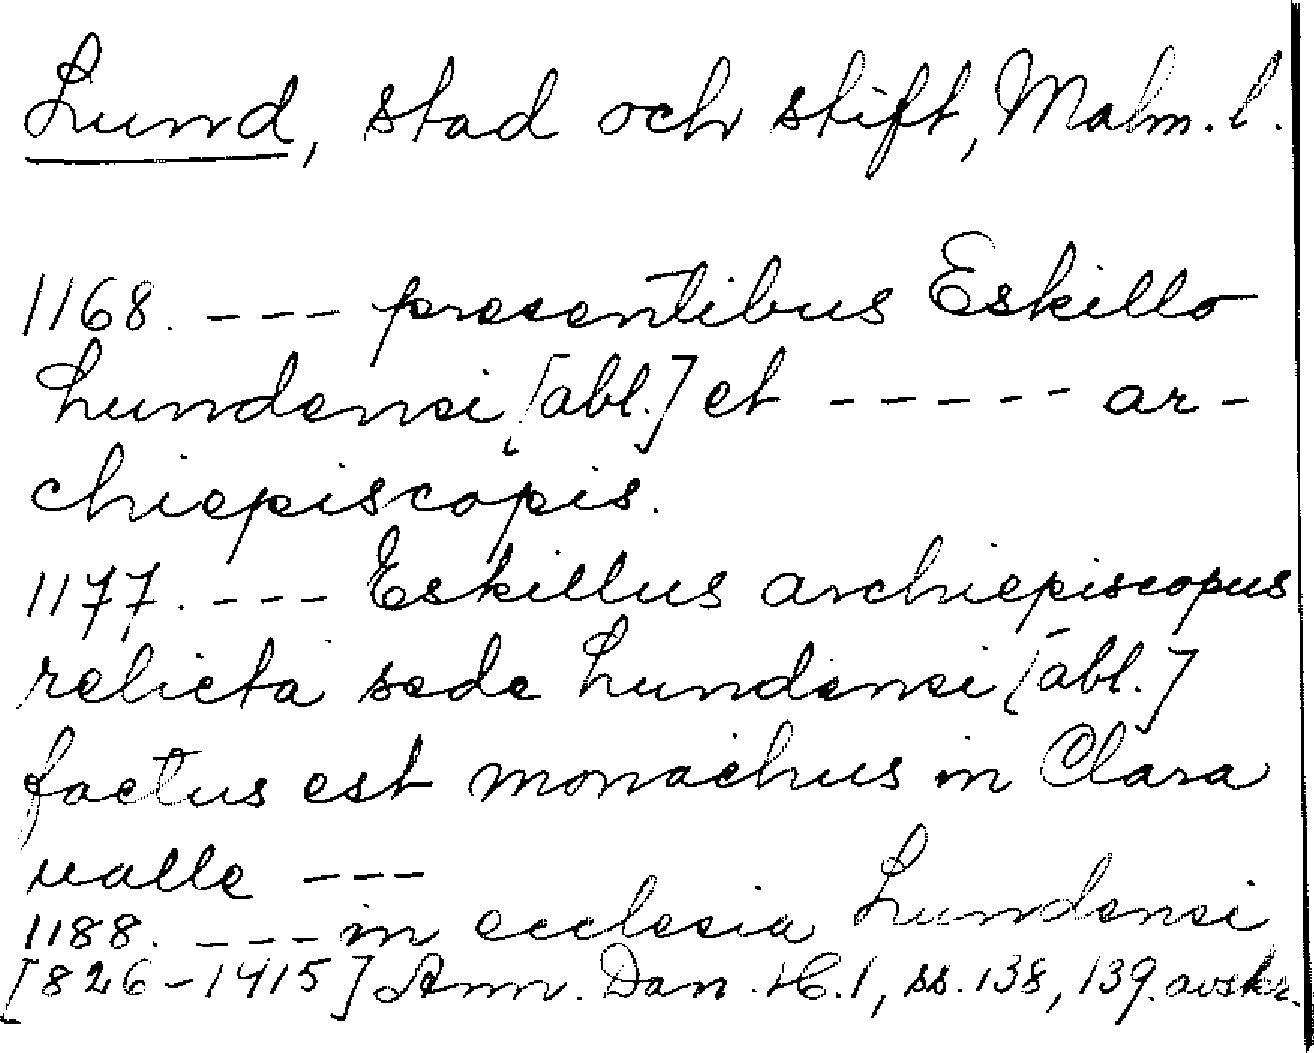 Lund, stad och stift, Malm. l.
1168. --- presentibus Eskillo
Lundensi [abl.] et ----- ar-
chiepiscopis.
1177. --- Eskillus archiepiscopus
relicta sede Lundensi [abl.]
factus est monachus in Clara
ualle ---
1188. --- in ecclesia Lundensi
[826-1415] Ann. Dan. H. 1, ss. 138, 139. avskr.